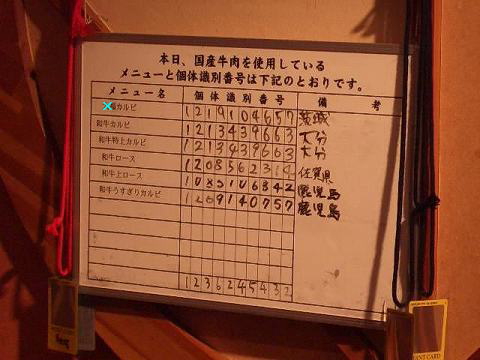 本日、国産牛肉を使用している
メニューと個体識別番号は下記のとおりです。
メニュー名 個体識別番号 備考
カルビ 1219104657 茨城
和牛カルビ 1213439663 大分
和牛特上カルビ 1213439663 大分
和牛ロース 1208562314 佐賀県
和牛上ロース 1085106842 鹿児島
和牛うすぎりカルビ 1209140757 鹿児島
1236245432